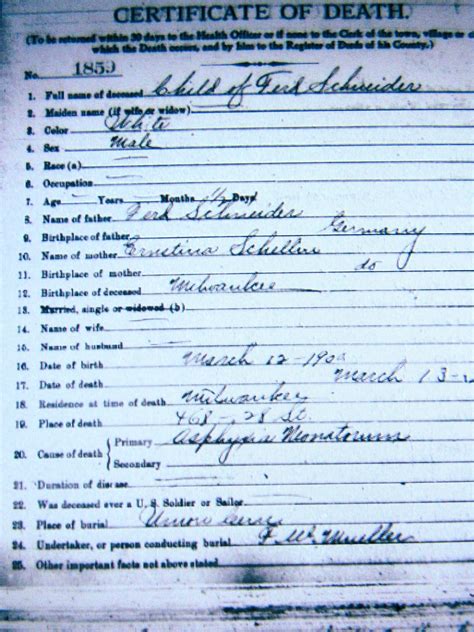 CERTIFICATE OF DEATH.
(To be returned within 30 days to the Health Officer or if none to the Clerk of the town, village or
which the Death occurs, and by him to the Register of Deeds of his County.)
No. 1859
1. Full name of deceased Child of Ferd Schneider
2. Maiden name (if wife or widow)
3. Color White
4. Sex Male
5. Race (a)
6. Occupation
7. Age Years Months 1/2 Days
8. Name of father Ferd Schneider
9. Birthplace of father Germany
10. Name of mother Ernstina
11. Birthplace of mother do
12. Birthplace of deceased Milwaukee
13. Married, single or widowed (b)
14. Name of wife
15. Name of husband
16. Date of birth March 12-190
17. Date of death March 13-
18. Residence at time of death Milwaukee
19. Place of death 468-28 St.
20. Cause of death Primary Asphyxia Neonatorum
Secondary
21. Duration of disease
22. Was deceased ever a U. S. Soldier or Sailor
23. Place of burial Union
24. Undertaker, or person conducting burial F. W. Mueller
25. Other important facts not above stated